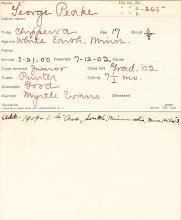 Name
File No. Ex.
George Peake
" " " 0-265-
Indian name
Tribe Chippewa Age 17 Blood 3/8
Agency White Earth, Minn.
Father
Arrived 3-21-00 Departed 7-12-02 Cause
Class entered Junior Class left Grad. '02
Trade Printer Outing 7 1/2 mo.
Character Good
Married Myrtle Evans Deceased
Remarks
Add- 1909- 1 Ave, South, Minneapolis, Minn.